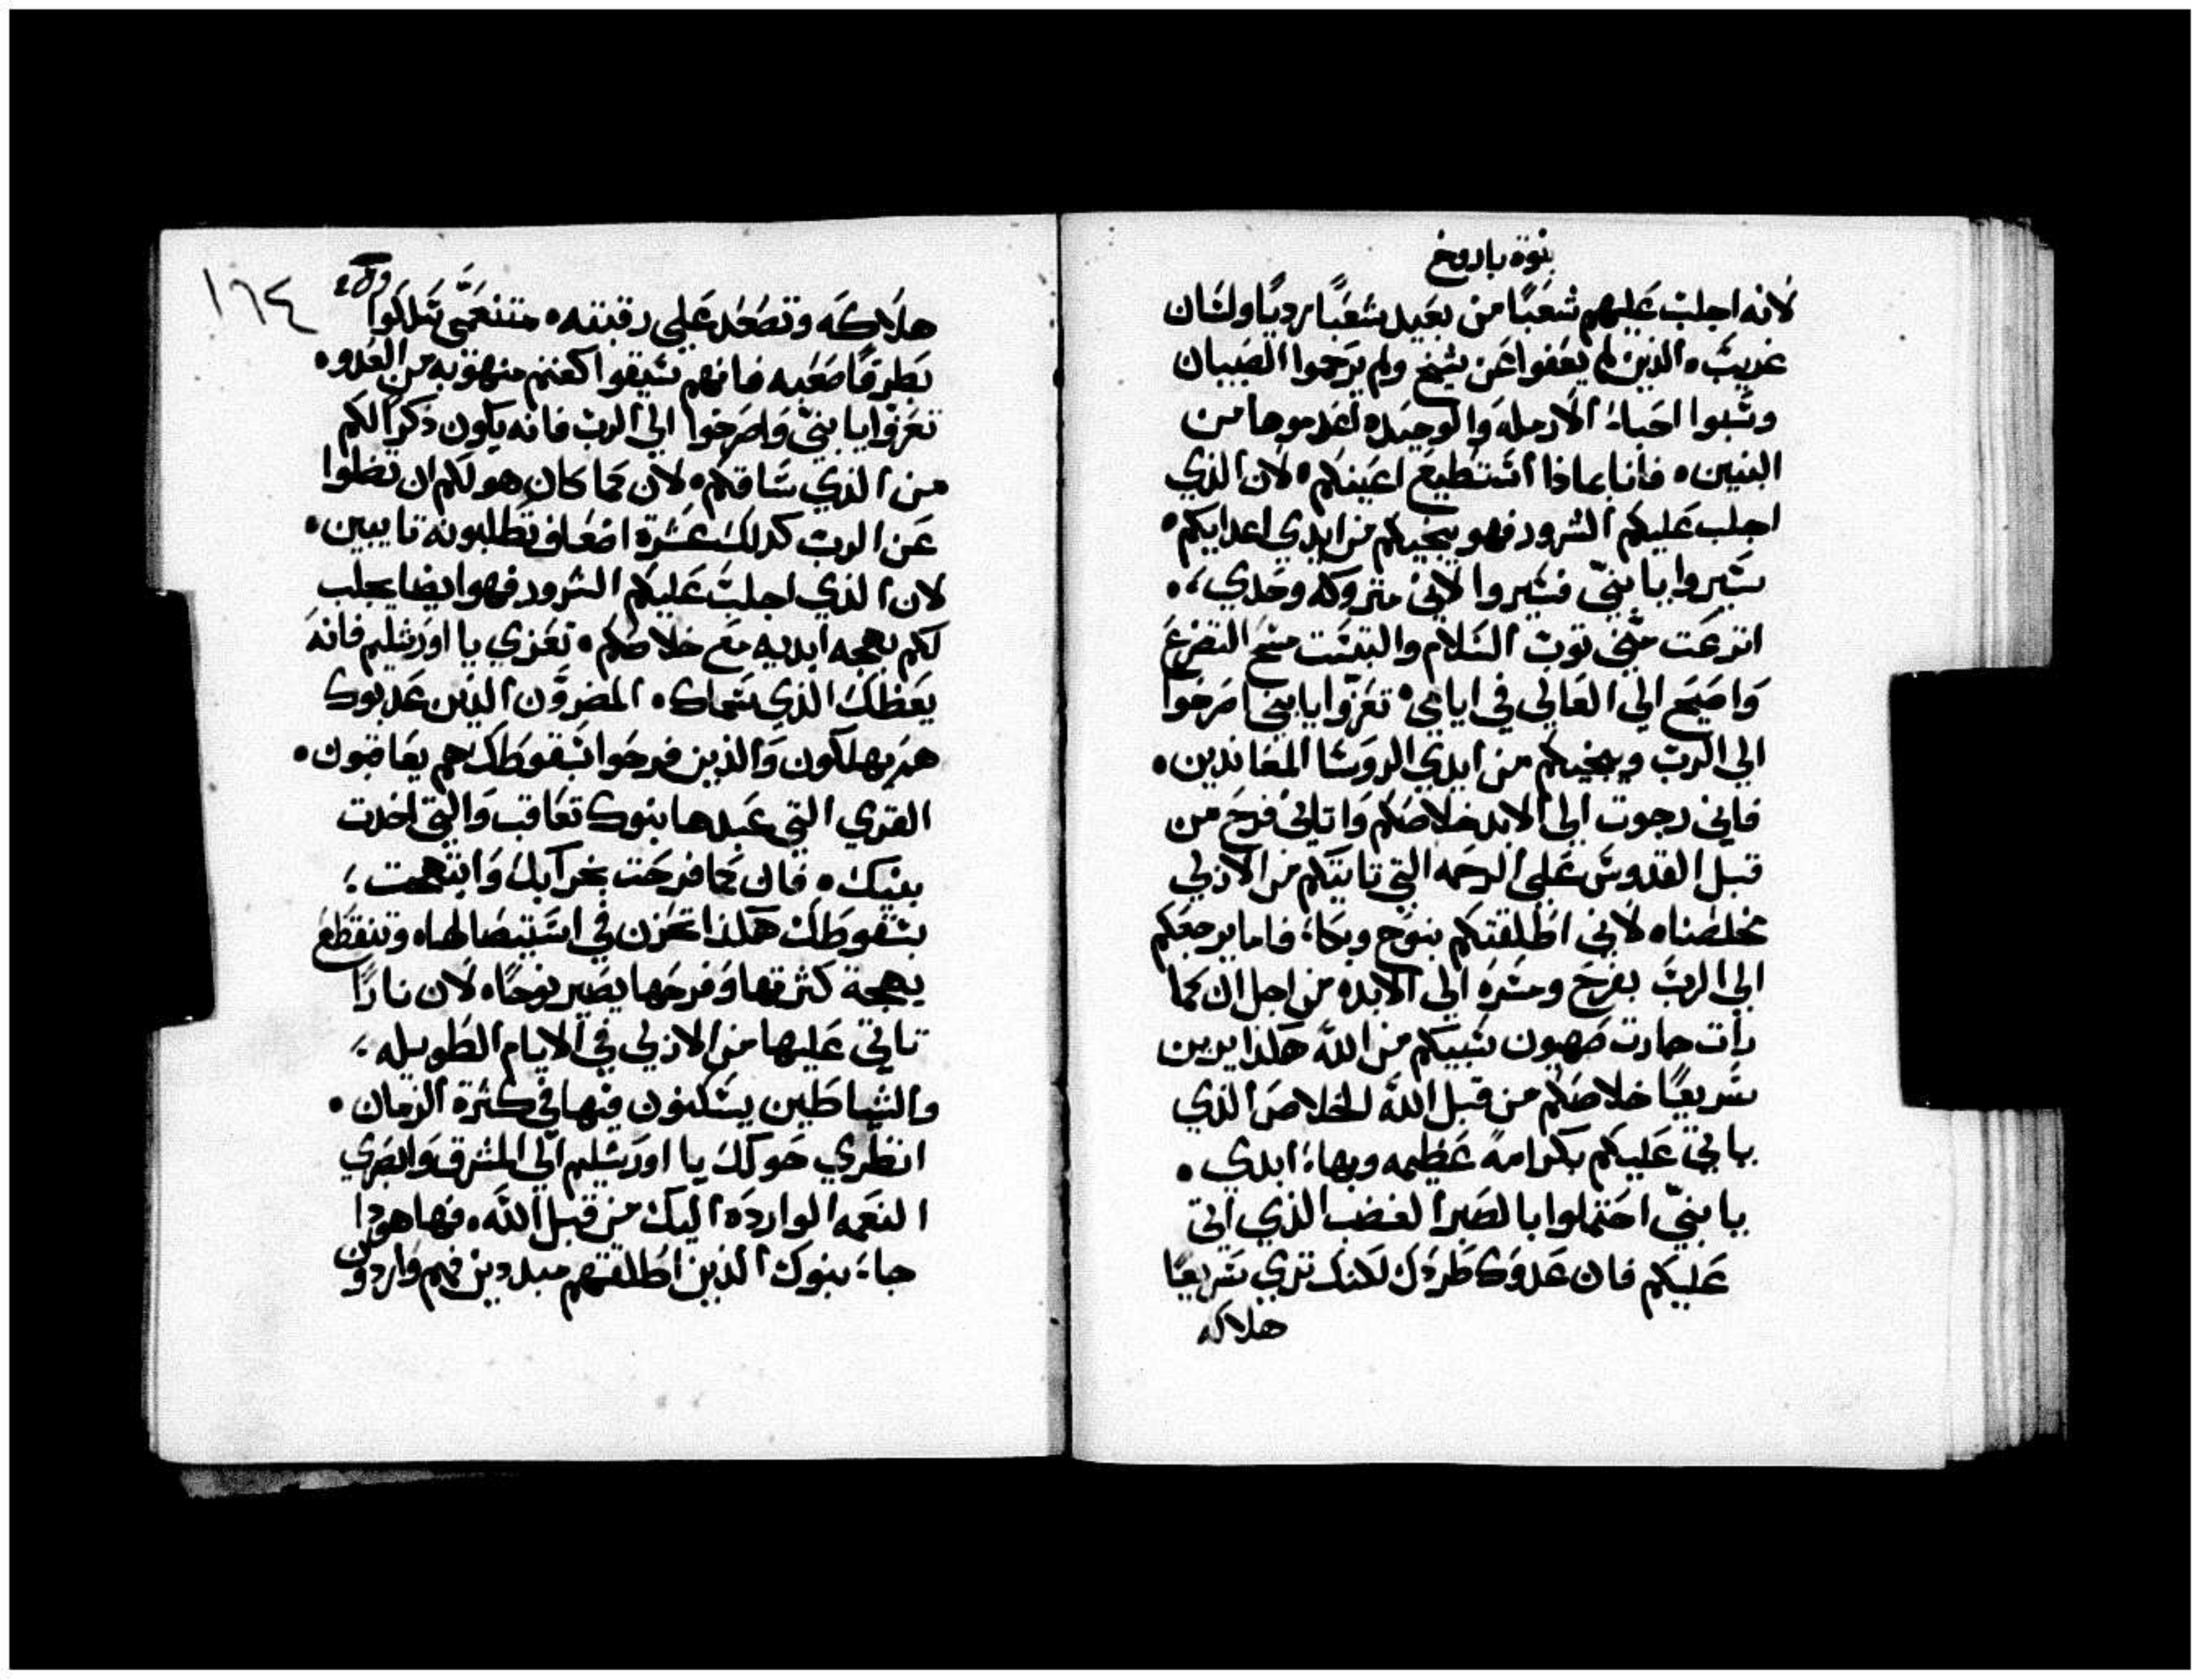 نبوة باروخ
لانه اجلب عليهم شعبًا من بعيد شعبًا رديًا ولسان
غريب الذين لم يعفوا عن شيخ ولم يرحموا الصبيان
وسبوا احباء الارمله والوحيده اعدموها من
البنين فانا بماذا استطيع اعينكم لان الذي
اجلب عليكم الشرور فهو ينجيكم من ايدي اعدايكم
سيروا يا بنيّ فسيروا لاني متروكه وحدي
انزعت عني توب السلام والبتست مسح التضرع
واصيح الي العالي في ايامي تعزّوا يا بني اصرخوا
الي الرب وينجيكم من ايدي الروسا المعاندين
فاني رجوت الي الابد خلاصكم واتاني فرح من
قبل القدوس علي الرحمه التي تاتيكم من الازلي
مخلصنا لاني اطلقتكم بنوح وبكاء فاما يرجعكم
الي الرب بفرح ومسره الي الابد من اجل ان كما
رات جارت صهيون سبيكم من الله هكذا يرين
سريعًا خلاصكم من قبل الله الخلاص الذي
ياتي عليكم بكرامة عظيمه وبهاء ابدي
يا بنيّ احتملوا بالصبر الغضب الذي اتي
عليكم فان عدوك طردك لكنك تري سريعًا
هلاكه
١٦٤
هلاكه وتصعد علي رقبته متنعمّي سلكوا
بطرقًا صعبه فانهم سيقوا كغنم منهوبه من العدو
تعزوا يا بنيّ واصرخوا الي الرب فانه يكون ذكرًا لكم
من الذي ساقكم لان كما كان هو لكم ان تضلوا
عن الرب كدلك عشرة اضعاف تطلبونه تايبين
لان الذي اجلب عليكم الشرور فهو ايضا يجلب
لكم بهجه ابديه مع خلاصكم تعزي يا اورشليم فانه
يعظك الذي سماك المضرّون الذين عدبوك
هم يهلكون والذين فرحوا بسقوطك هم يعاقبون
القري التي عبدها بنوك تعاقب والتي اخدت
بنيك فان كما فرحت بخرابك وابتهجت
بسقوطك هكذا تحزن في استيصالها وتنقطع
بهجة كثرتها وفرحها يصير نوحًا لان نارًا
تاتي عليها من الازلي في الايام الطويله
والشياطين يسكنون فيها في كثرة الزمان
انظري حولك يا اورشليم الي المشرق وابصري
النعمه الوارده اليك من قبل الله فها هودا
جاء بنوك الذين اطلقتهم مبددين فهم واردون